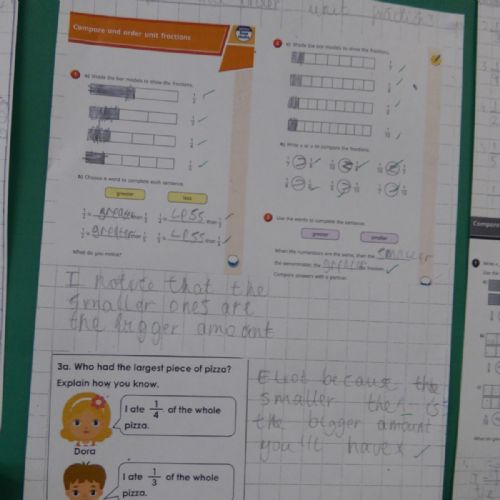 Compare and order unit fractions
1 a) Shade the bar models to show the fractions.
b) Choose a word to complete each sentence.
greater less
greater than
LESS than
greater than
LESS than
What do you notice?
2 a) Shade the bar models to show the fractions.
b) Write > or < to compare the fractions.
3 Use the words to complete the sentence.
greater smaller
When the numerators are the same, then the smaller
the denominator, the greater the fraction.
Compare answers with a partner.
I notice that the
smaller ones are
the bigger amount
3a. Who had the largest piece of pizza?
Explain how you know.
I ate 1/4 of the whole
pizza.
Dora
I ate 1/3 of the whole
pizza.
Eliot because the
smaller the is
the bigger amount
you'll have
Compare